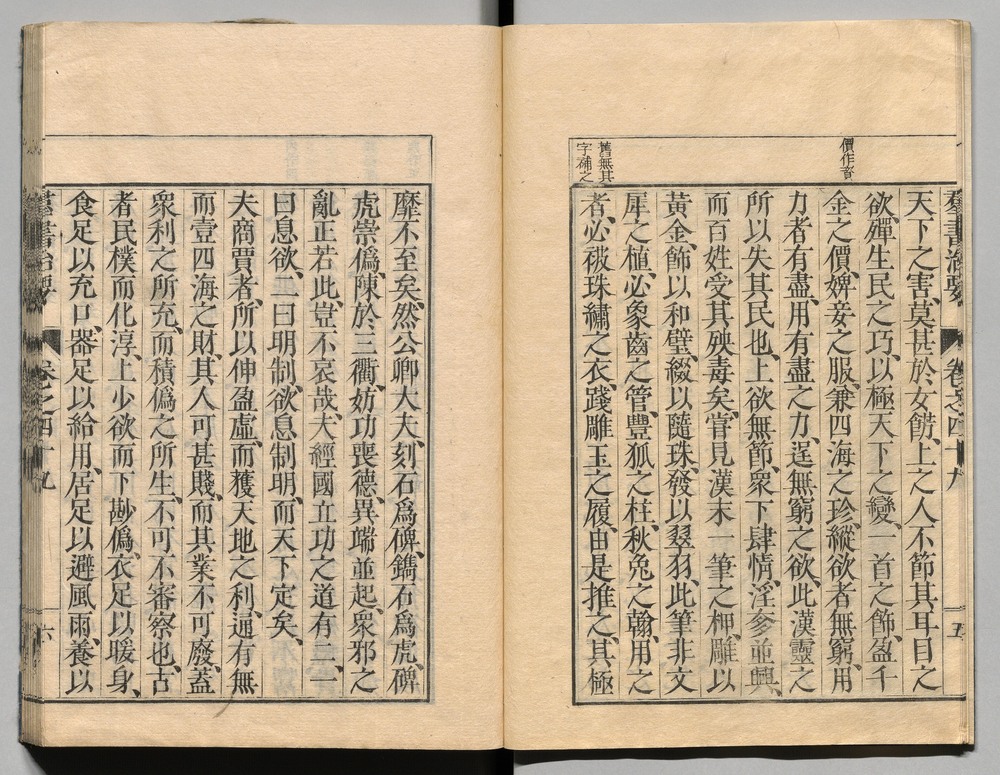 價作資
舊無其
字補之
羣書治要
卷之四十九
五
天下之害、莫甚於女餝、上之人不節其耳目之
欲、殫生民之巧、以極天下之變、一首之飾、盈千
金之價、婢妾之服、兼四海之珍、縱欲者無窮、用
力者有盡、用有盡之力、逞無窮之欲、此漢靈之
所以失其民也、上欲無節、衆下肆情、淫奓並興、
而百姓受其殃毒矣、甞見漢末一筆之柙、雕以
黃金、飾以和璧、綴以隨珠、發以翠羽、此筆非文
犀之植、必象齒之管、豐狐之柱、秋兔之翰、用之
者、必被珠繡之衣、踐雕玉之履、由是推之、其極
靡不至矣、然公卿大夫、刻石爲碑、鐫石爲虎、碑
虎崇僞、陳於三衢、妨功喪德、異端並起、衆邪之
亂正若此、豈不哀哉、夫經國立功之道有二、一
曰息欲、二曰明制、欲息制明、而天下定矣、
夫商賈者、所以伸盈虛、而獲天地之利、通有無
而壹四海之財、其人可甚賤、而其業不可廢、蓋
衆利之所充、而積僞之所生、不可不審察也、古
者民樸而化淳、上少欲而下尠僞、衣足以暖身、
食足以充口、器足以給用、居足以避風雨、養以
羣書治要
卷之四十九
六